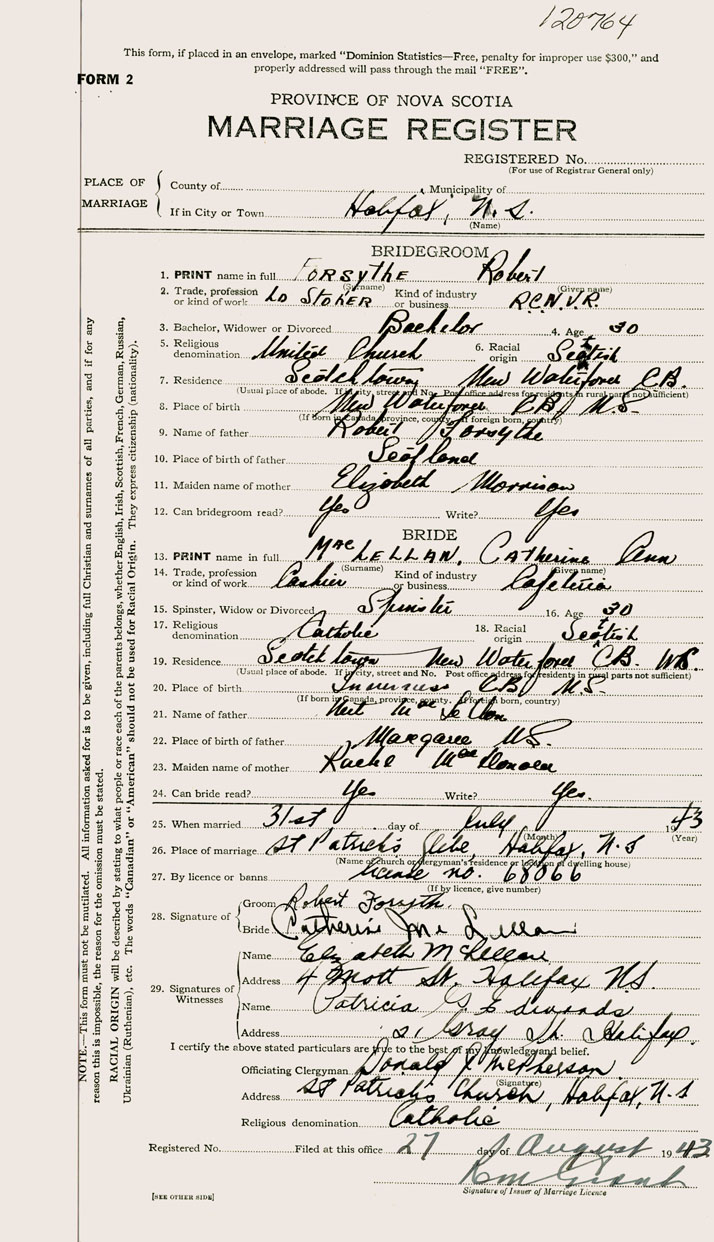 120764
This form, if placed in an envelope, marked "Dominion Statistics—Free, penalty for improper use $300," and
properly addressed will pass through the mail "FREE".
FORM 2
PROVINCE OF NOVA SCOTIA
MARRIAGE REGISTER
REGISTERED No.
(For use of Registrar General only)
PLACE OF MARRIAGE
County of , Municipality of
If in City or Town Halifax, N.S.
(Name)
BRIDEGROOM
1. PRINT name in full FORSYTHE Robert
(Surname) (Given name)
2. Trade, profession or kind of work LD STOKER Kind of industry or business R.C.N.V.R.
3. Bachelor, Widower or Divorced Bachelor 4. Age 30
5. Religious denomination United Church 6. Racial origin Scotish
7. Residence Scotchtown New Waterford C.B.
(Usual place of abode. If in city, street and No. Post office address for residents in rural parts not sufficient)
8. Place of birth New Waterford CB N.S.
(If born in Canada, province, county. If foreign born, country)
9. Name of father Robert Forsythe
10. Place of father Scotland
11. Maiden name of mother Elizabeth Morrison
12. Can bridegroom read? Yes Write? Yes
BRIDE
13. PRINT name in full MacLELLAN, Catherine Ann
(Surname) (Given name)
14. Trade, profession or kind of work Cashier Kind of industry or business Cafeteria
15. Spinster, Widow or Divorced Spinster 16. Age 30
17. Religious denomination Catholic 18. Racial origin Scotish
19. Residence Scotch town New Waterford C.B. N.S.
(Usual place of abode. If in city, street and No. Post office address for residents in rural parts not sufficient)
20. Place of birth Inverness CB N.S.
(If born in Canada, province, county. If foreign born, country)
21. Name of father Mac Lellan
22. Place of birth of father Margaree N.S.
23. Maiden name of mother Mac
24. Can bride read? Yes Write? Yes.
25. When married 31st day of July 1943
(Month) (Year)
26. Place of marriage St Patrick's Glebe, Halifax, N.S
(Name of church or clergyman's residence or location of dwelling house)
27. By licence or banns license no. 68066
(If by licence, give number)
28. Signature of Groom Robert Forsythe.
Bride Catherine Mc Lellan
29. Signatures of Witnesses
Name Elizabeth McLellan
Address 4 Mott St. Halifax N.S.
Name Patricia G. Edwards
Address Gray St. Halifax.
I certify the above stated particulars are true to the best of my knowledge and belief.
Officiating Clergyman Donald J McPherson
(Signature)
Address St Patrick's Church, Halifax, N.S
Religious denomination Catholic
Registered No. Filed at this office 27 day of August 1943
Signature of Issuer of Marriage Licence
[SEE OTHER SIDE]
NOTE.—This form must not be mutilated. All information asked for is to be given, including full Christian and surnames of all parties, and if for any
reason this is impossible, the reason for the omission must be stated.
RACIAL ORIGIN will be described by stating to what people or race each of the parents belongs, whether English, Irish, Scottish, French, German, Russian,
Ukrainian (Ruthenian), etc. The words "Canadian" or "American" should not be used for Racial Origin. They express citizenship (nationality).